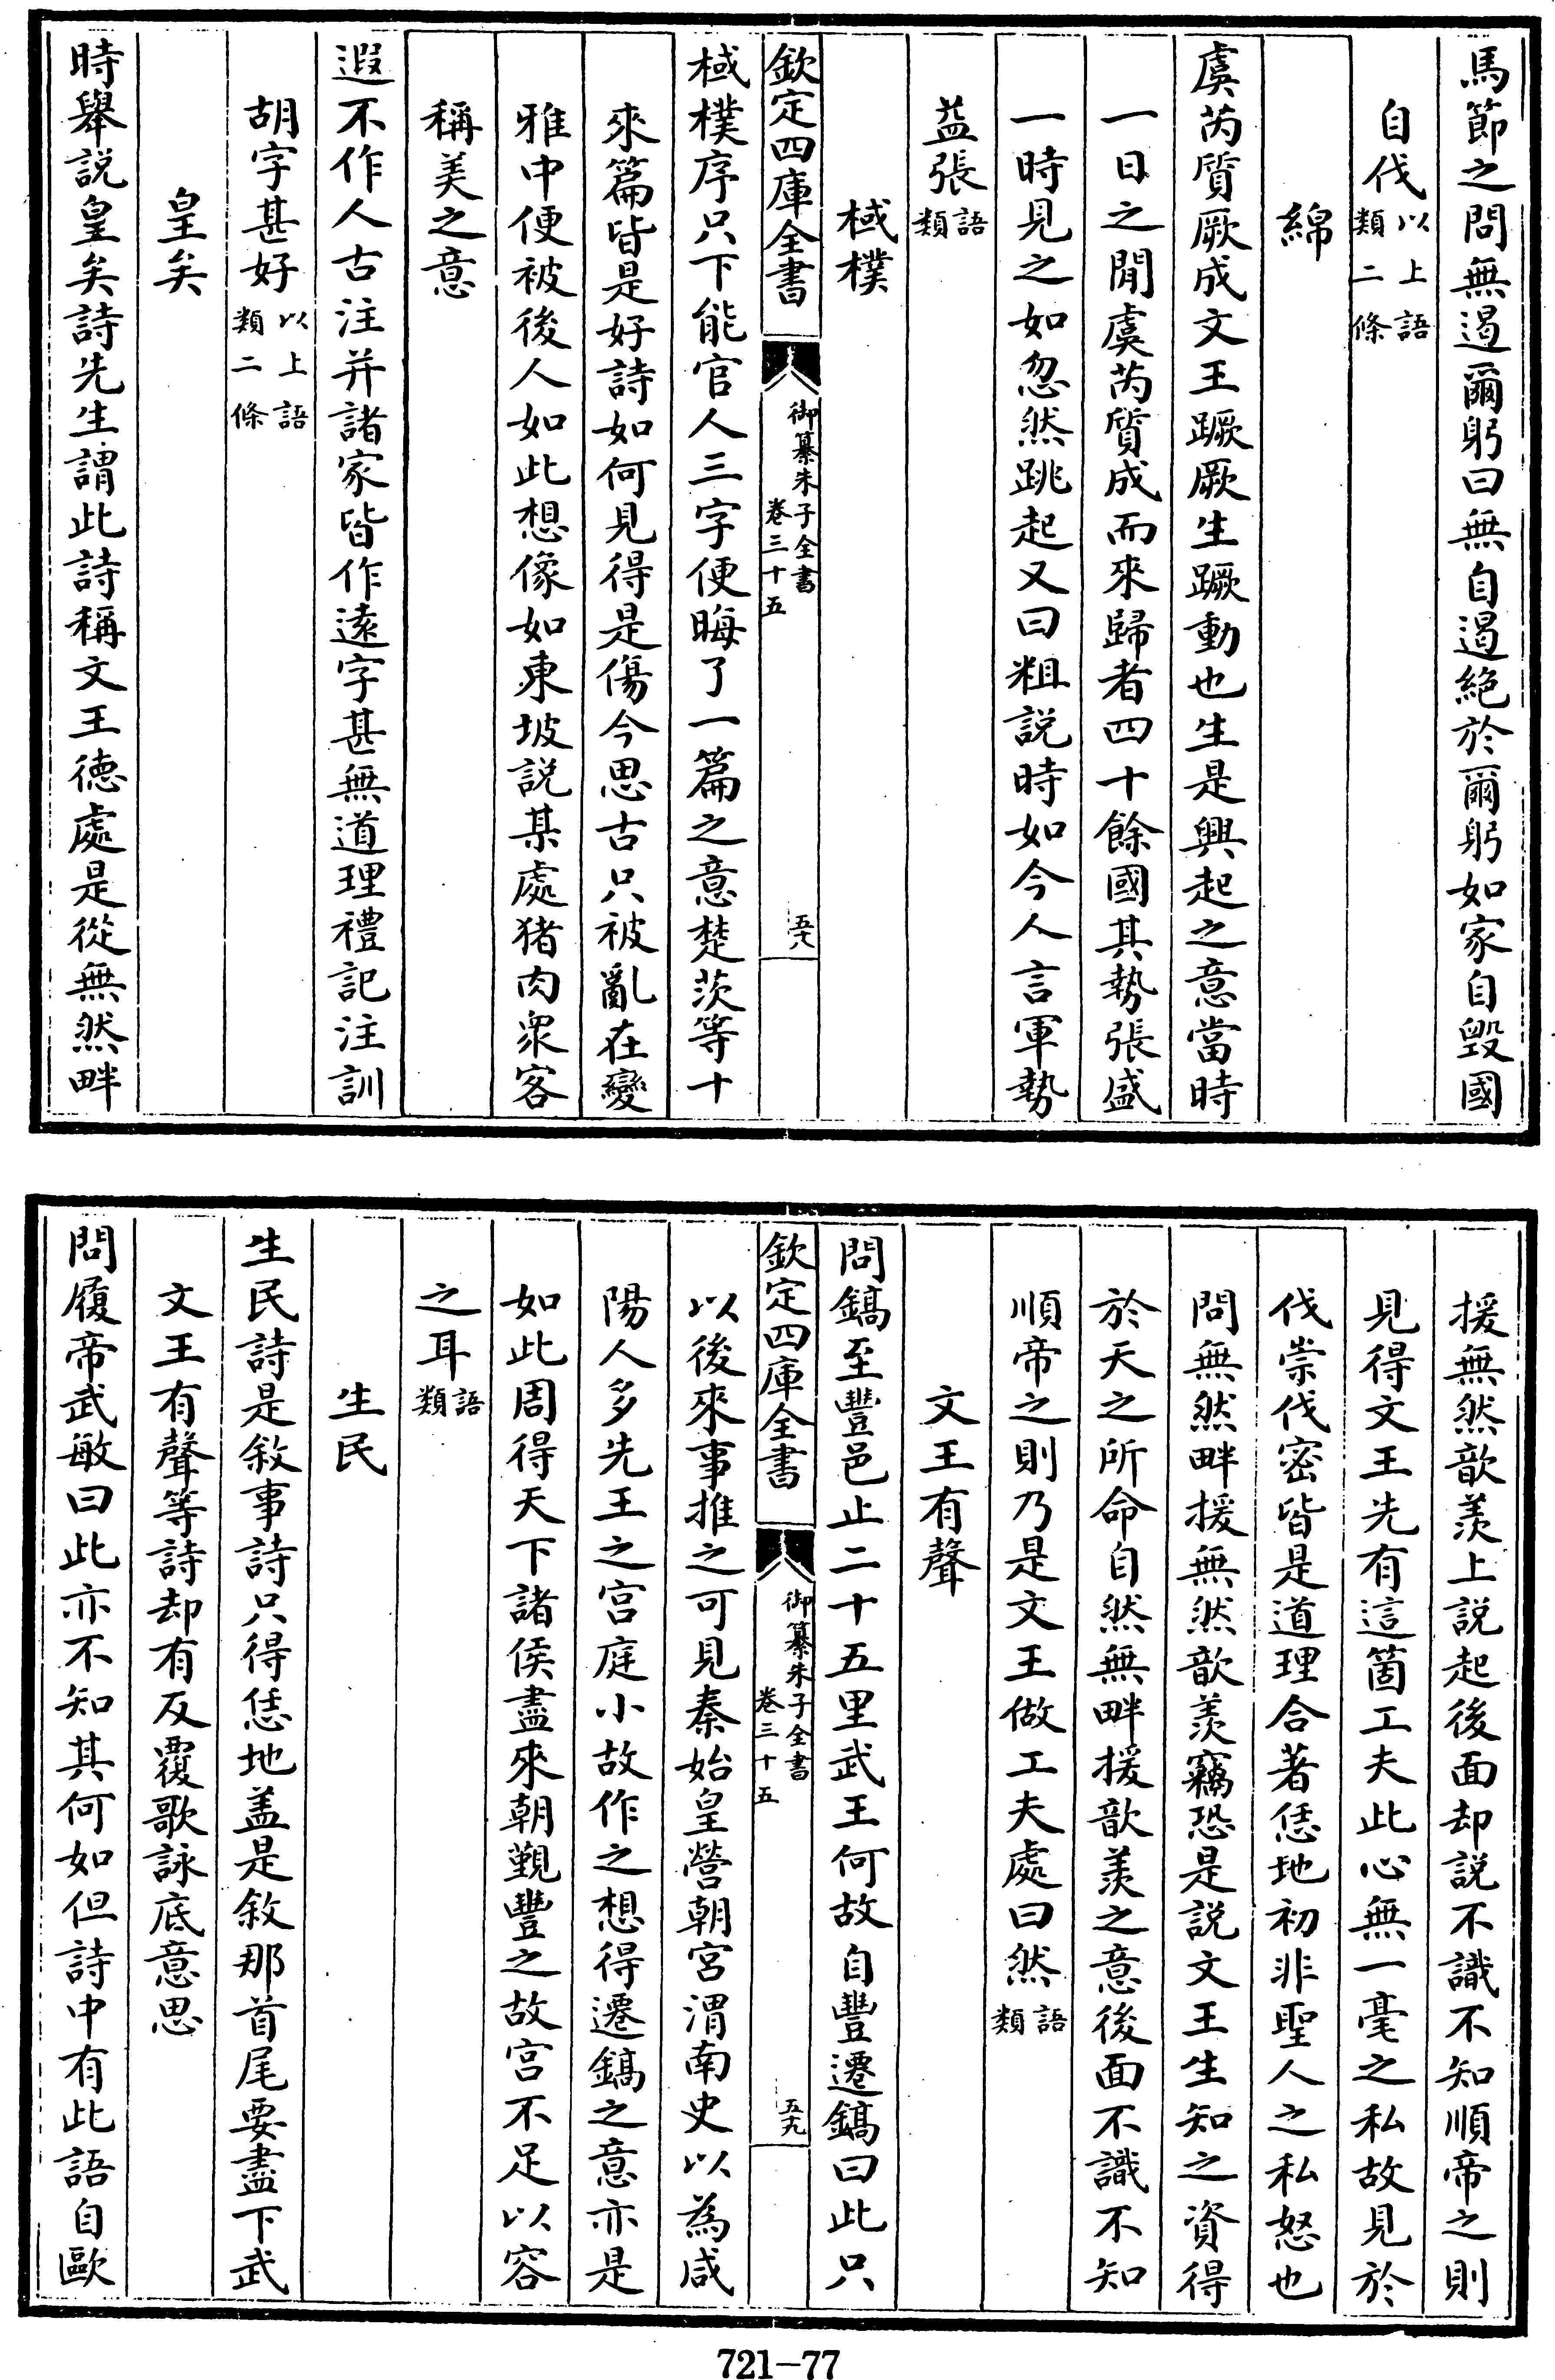 馬節之問無遏爾躬曰無自遏絶於爾躬如家自毁國
自伐以上語類二條
綿
虞芮質厥成文王蹶厥生蹶動也生是興起之意當時
一日之間虞芮質成而來歸者四十餘國其勢張盛
一時見之如忽然跳起又曰粗説時如今人言軍勢
益張語類
棫樸
欽定四庫全書
御纂朱子全書
卷三十五
五十八
棫樸序只下能官人三字便晦了一篇之意楚茨等十
來篇皆是好詩如何見得是傷今思古只被亂在變
雅中便被後人如此想像如東坡説某處猪肉衆客
稱美之意
遐不作人古注并諸家皆作遠字甚無道理禮記注訓
胡字甚好以上語類二條
皇矣
時舉説皇矣詩先生謂此詩稱文王德處是從無然畔
援無然歆羡上説起後面却説不識不知順帝之則
見得文王先有這箇工夫此心無一毫之私故見於
伐崇伐密皆是道理合著恁地初非聖人之私怒也
問無然畔援無然歆羡竊恐是説文王生知之資得
於天之所命自然無畔援歆羡之意後面不識不知
順帝之則乃是文王做工夫處曰然語類
文王有聲
問鎬至豐邑止二十五里武王何故自豐遷鎬曰此只
欽定四庫全書
御纂朱子全書
卷三十五
五十九
以後來事推之可見秦始皇營朝宮渭南史以為咸
陽人多先王之宫庭小故作之想得遷鎬之意亦是
如此周得天下諸侯盡來朝覲豐之故宫不足以容
之耳語類
生民
生民詩是敘事詩只得恁地盖是敘那首尾要盡下武
文王有聲等詩却有反覆歌詠底意思
問履帝武敏曰此亦不知其何如但詩中有此語自歐
721-77